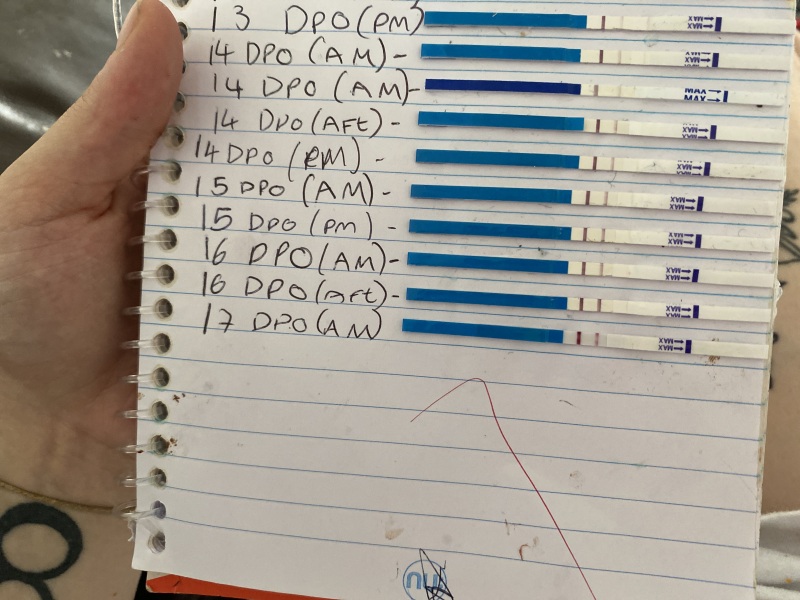 13 DPO (PM)
14 DPO (AM) -
14 DPO (AM) -
MAX
MAX
14 DPO (Aft) -
MAX
14 DPO (PM) -
MAX
15 DPO (AM) -
MAX
15 DPO (PM) -
MAX
16 DPO (AM) -
MAX
16 DPO (Aft) -
MAX
17 DPO (AM)
MAX
nu